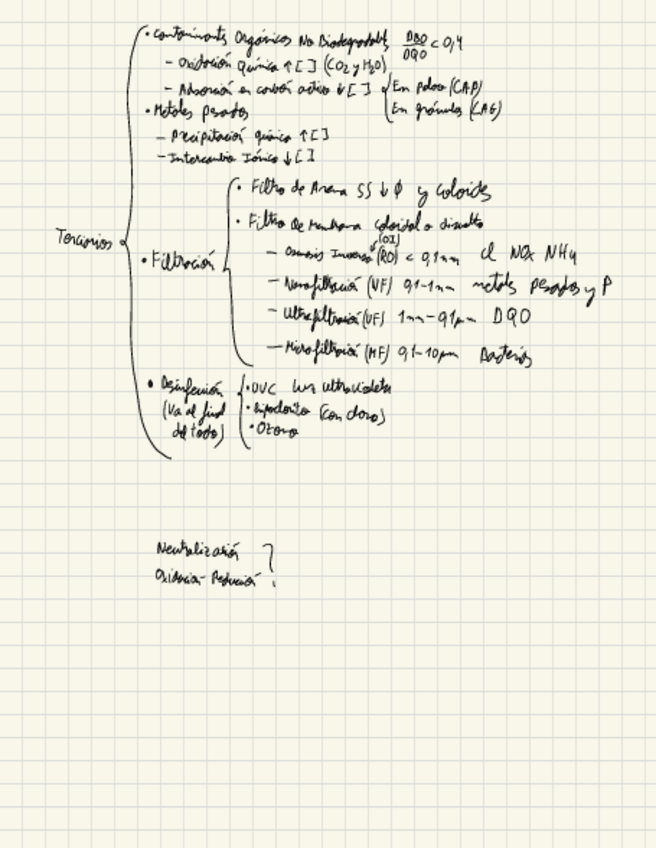 Terciarios
• Contaminants Orgánicos No Biodegradabls DBO/DQO < 0,4
- Oxidación Química ↑[ ] (CO2 y H2O)
- Adsorción en carbón activo ↓[ ] En polvo (CAP)
En gránulos (CAG)
• Metales Pesados
- Precipitación química ↑[ ]
- Intercambio Iónico ↓[ ]
• Filtración
• Filtro de Arena SS ↓ φ y coloides
• Filtro De Membrana coloidal o disuelto
(OI)
- Osmosis Inversa (RO) < 0,1nm Cl NOx NH4
- Nanofiltración (NF) 0,1-1nm metals pesados y P
- Ultrafiltración (UF) 1nm-0,1μm DQO
- Microfiltración (MF) 0,1-10μm Bacterias
• Desinfección
(Va al final
del todo)
• UVC luz ultravioleta
• Hipoclorito (con cloro)
• Ozono
Neutralización
Oxidación-Reducción ?